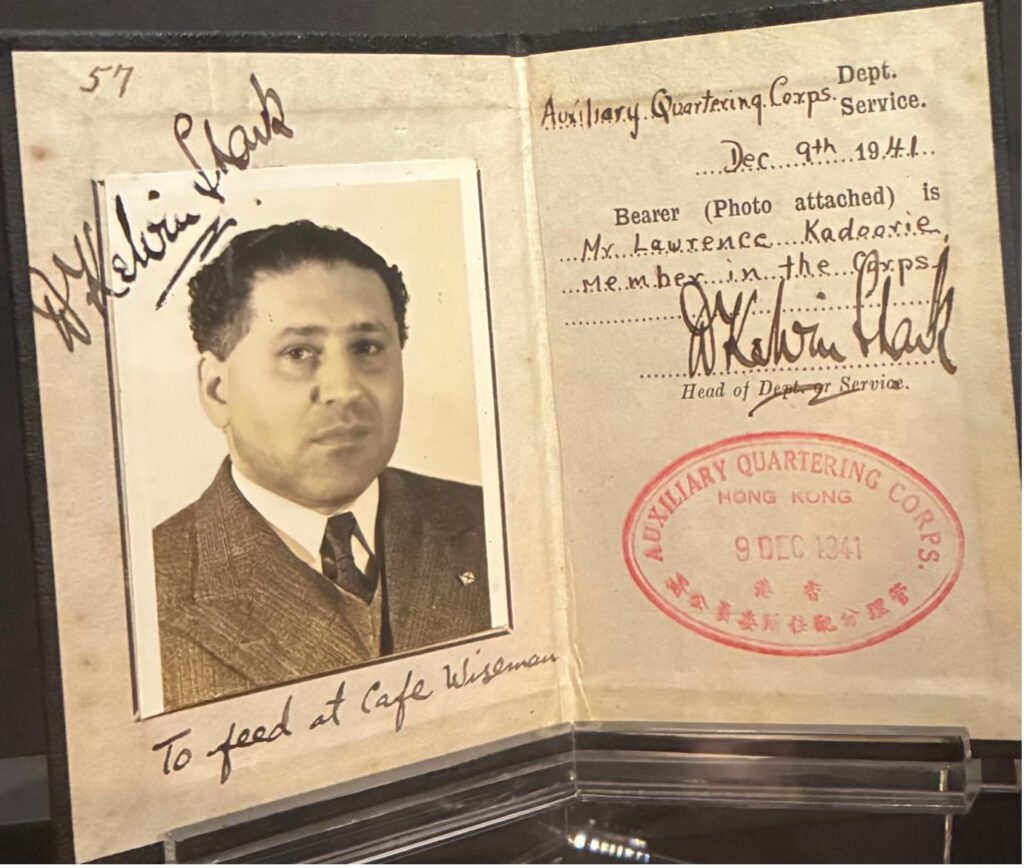 57
Kelvin Stark
To feed at Cafe Wiseman
Auxiliary Quartering Corps. Dept.
Service.
Dec 9th 1941
Bearer (Photo attached) is
Mr. Lawrence Kadoorie,
Member in the Corps.
Kelvin Stark
Head of Dept. or Service.
AUXILIARY QUARTERING CORPS.
HONG KONG
9 DEC 1941
香港
管理分配住所委員